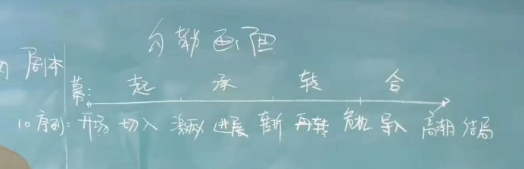 勾勒画面
剧本
幕: 起 承 转 合
10序列: 开场 切入 激励 进展 转折 再转 危机 导入 高潮 结局